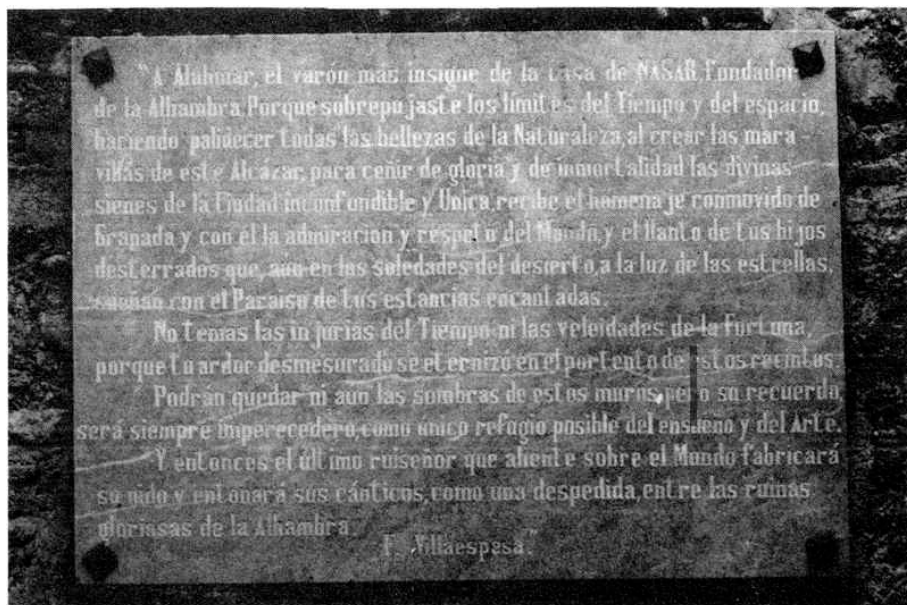 "A Alahmar, el varón mas insigne de la casa de NASAR, Fondador
de la Alhambra. Porque sobrepujaste los límites del Tiempo y del espacio,
haciendo palidecer todas las bellezas de la Naturaleza, al crear las mara-
villas de este Alcázar, para ceñir de gloria y de inmortalidad las divinas
sienes de la Ciudad inconfundible y Unica, recibe el homenaje conmovido de
Granada y con él la admiracion y respeto del Mundo, y el llanto de tus hijos
desterrados que, aun en las soledades del desierto, a la luz de las estrellas,
sueñan con el Paraiso de tus estancias encantadas.
No temas las injurias del Tiempo ni las veleidades de la Fortuna,
porque tu ardor desmesurado se eternizó en el portento de estos recintos.
Podrán quedar ni aun las sombras de estos muros, pero su recuerdo,
será siempre imperecedero, como unico refugio posible del ensueño y del Arte.
Y entonces el último ruiseñor que aliente sobre el Mundo fabricará
su nido y entonará sus cánticos, como una despedida, entre las ruinas
gloriasas de la Alhambra.
F. Villaespesa."